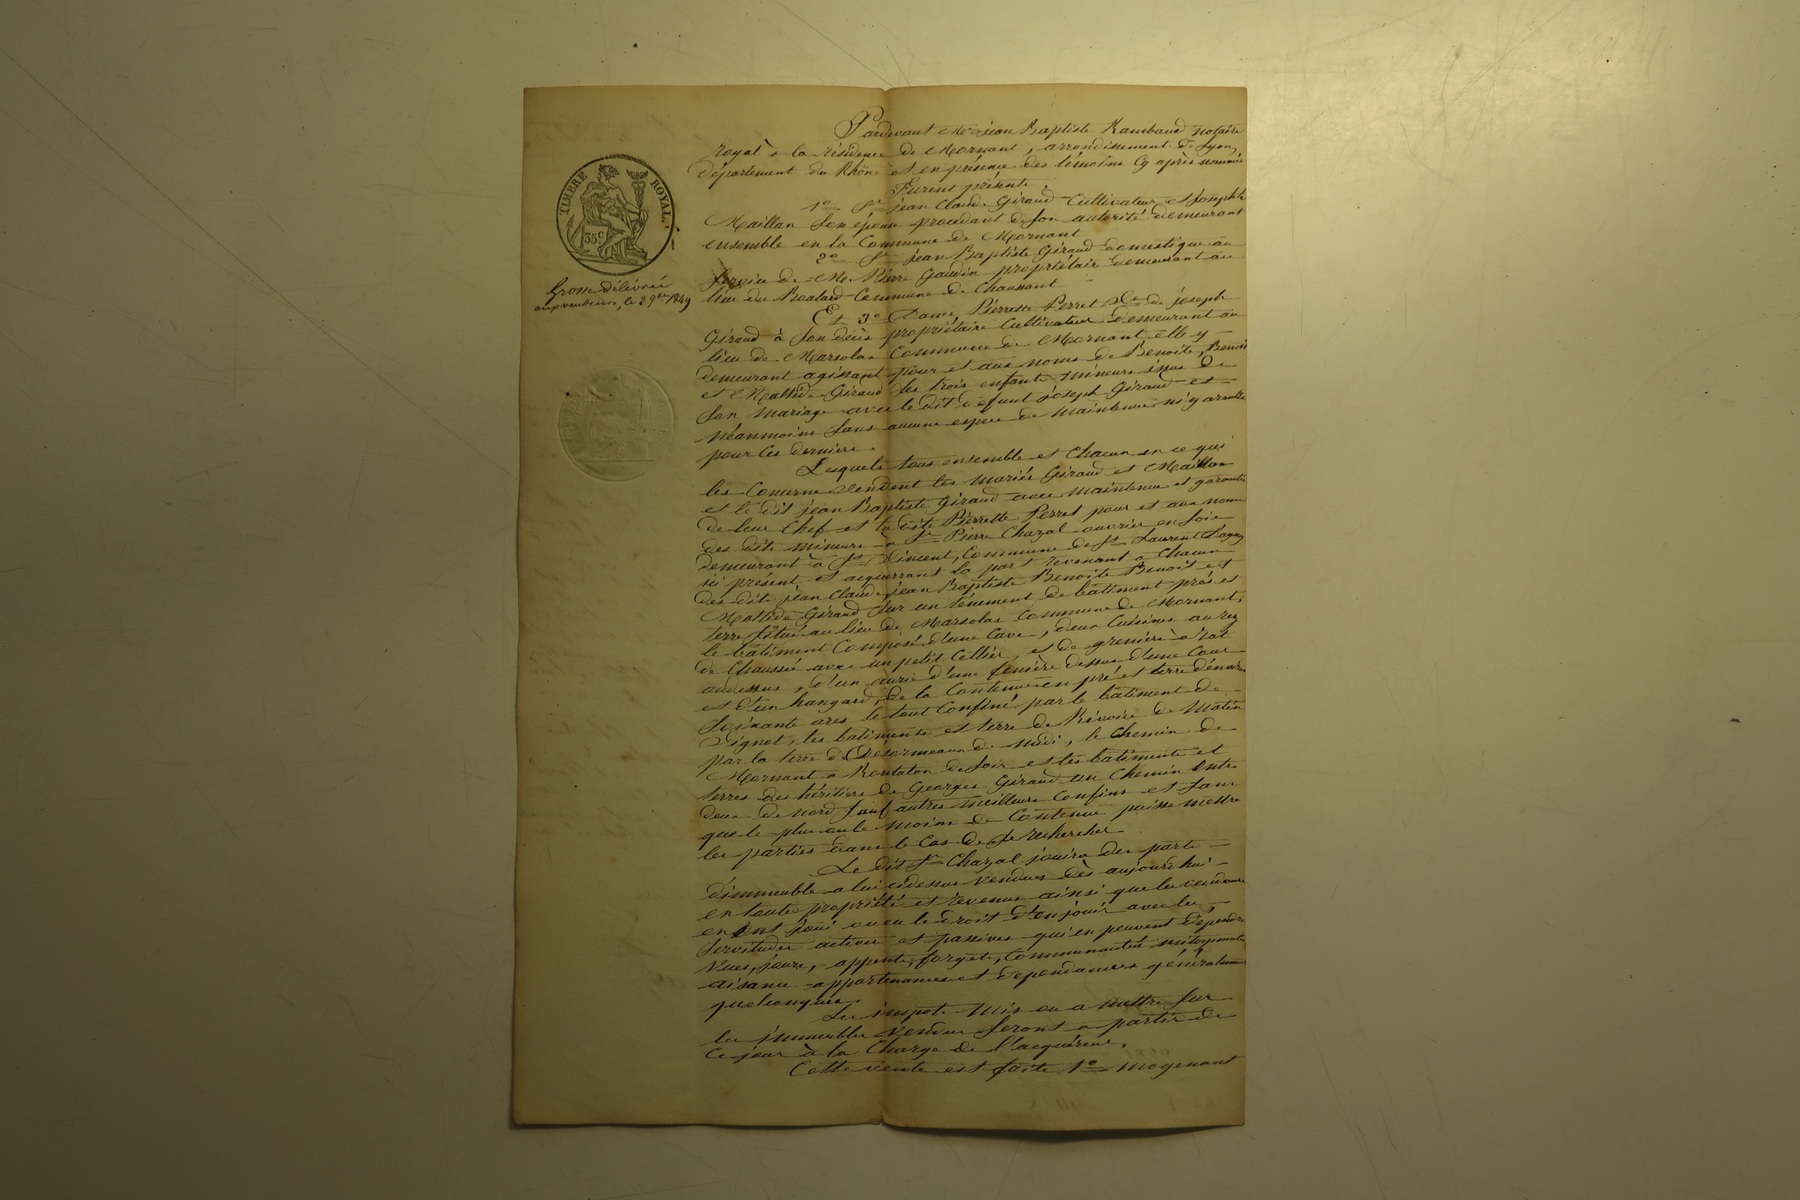 Pardevant Me jean Baptiste Rambaud notaire
royal à la résidence de Mornant, arrondissement de Lyon,
département du Rhône et en présence des témoins cy après nommés
Furent présents
1o Sr jean Claude Giraud Cultivateur et Josephte
Maillan son épouse procédant de son autorité demeurant
ensemble en la Commune de Mornant
2o Sr jean Baptiste Giraud domestique au
service de Mr Pierre Gaudin propriétaire demeurant au
lieu du Boatard Commune de Chaussant
Et 3o Dame Pierrette Perret Ve de joseph
Giraud à son décès propriétaire Cultivateur demeurant au
lieu de Marsolas Commune de Mornant elle y
demeurant agissant pour et aux noms de Benoite, Benoit
et Matilde Giraud ses trois enfants mineurs issus de
son mariage avec le dit defunt joseph Giraud et
néanmoins sans aucune espece de maintenue ni garantie
pour ces derniers.
Lesquels tous ensemble et chacun en ce qui
les Concerne Vendent les mariés Giraud et Maillan
et le dit jean Baptiste Giraud avec maintenue et garantie
de leur Chef et la dite Pierrette Perret pour et aux noms
des dits mineurs à Sr Pierre Chazal ouvrier en soie
demeurant à St Vincent, Commune de St Laurent d'agny
ici présent et acquerrant la part revenant à chacun
des dits jean Claude, jean Baptiste Benoite Benoit et
Matilde Giraud sur un ténement de bâtiment prés et
terre situé au lieu de Marsolas Commune de Mornant,
le bâtiment Composé d'une Cave, deux Cuisines au rez
de Chaussée avec un petit Cellier, et de greniers à rat
audessus, d'un écurie d'une fenière dessus d'une Cour
et d'un hangard, de la Contenue en pré et terre d'environ
soixante ares le tout Confiné par le bâtiment de
Vignet, les batiments et terre de Rivoire de Matin
par la terre de Desormeaux de midi, le chemin de
Mornant à Rontalon de soir et les batiments et
terres des héritiers de Georges Giraud un chemin entre
deux de nord sauf autres meilleurs Confins et sans
que le plus ou le moins de Contenue puisse mettre
les parties dans le Cas de se rechercher
Le dit Sr Chazal jouira des parts
d'immeuble à lui cidessus vendues dès aujourd'hui
en toute propriété et revenus ainsi que les vendeurs
en ont joui ou eu le droit d'en jouir avec les
servitudes actives et passives qui en peuvent dépendre
vues, jours, Communautés mitoyennetés
aisances appartenances et dependances généralement
quelconques.
Les impots mis ou a mettre sur
les immeubles vendus seront à partir de
Ce jour à la Charge de l'acquéreur.
Cette vente est faite 1o moyenant
TIMBRE ROYAL.
35c
Grosse délivrée
le 29 9bre 1849